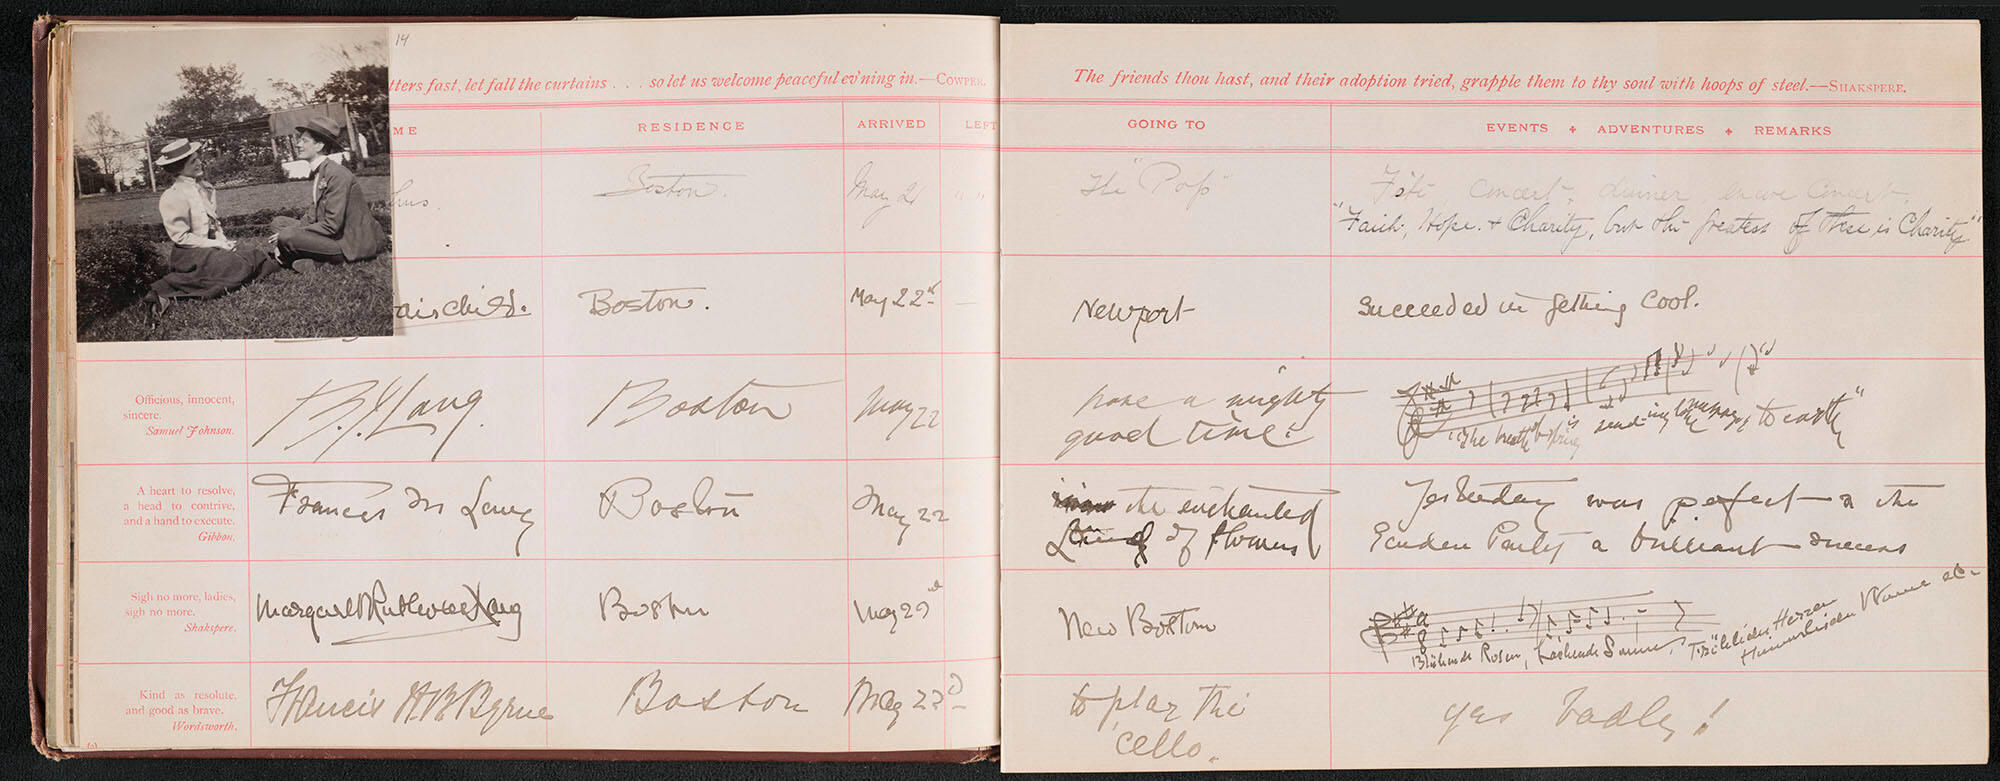 14
tters fast, let fall the curtains . . . so let us welcome peaceful ev'ning in.—COWPER.
ME
RESIDENCE
ARRIVED
LEFT
Boston.
May 21
" "
airchild.
Boston.
May 22d
—
Officious, innocent,
sincere.
Samuel Johnson.
B.J. Lang.
Boston
May 22
A heart to resolve,
a head to contrive,
and a hand to execute.
Gibbon.
Frances M Lang
Boston
May 22
Sigh no more, ladies,
sigh no more.
Shakspere.
Margaret Ruthven Lang
Boston
May
Kind as resolute,
and good as brave.
Wordsworth.
Francis A. B. Byrne
Boston
May 23d
The friends thou hast, and their adoption tried, grapple them to thy soul with hoops of steel.—SHAKSPERE.
GOING TO
EVENTS + ADVENTURES + REMARKS
The "Pops"
Fête, concert, dinner, concert.
"Faith, Hope, & Charity, but the greatest of these is Charity"
Newport
Succeeded in getting cool.
have a mighty
good time!
"The breath of spring is sending to earth"
the enchanted
of flowers
Yesterday was perfect & the
Garden Party a brilliant success
New Boston
Blühende Rosen, Lachende Sonne, Fröhlichen Herzen
Himmlischen Wonne etc.
to play the
cello.
yes badly!